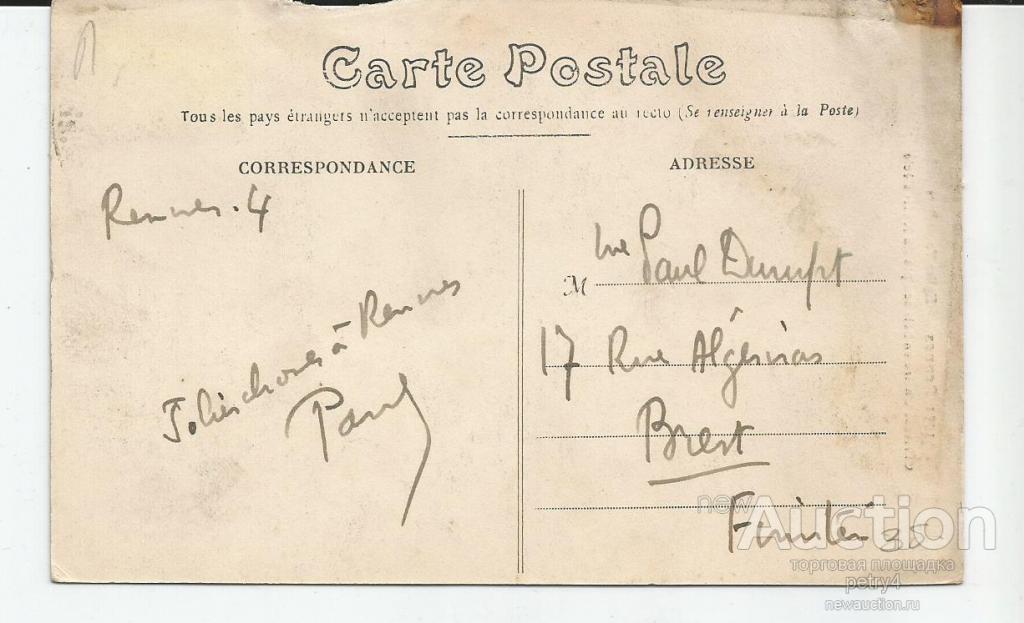 Carte Postale
Tous les pays étrangers n'acceptent pas la correspondance au recto (Se renseigner à la Poste)
CORRESPONDANCE
ADRESSE
Rennes. 4
Jolies choses à Rennes
Paul
M me Paul
17 Rue Algésiras
Brest
35
newAuction
торговая площадка
petry4
newauction.ru